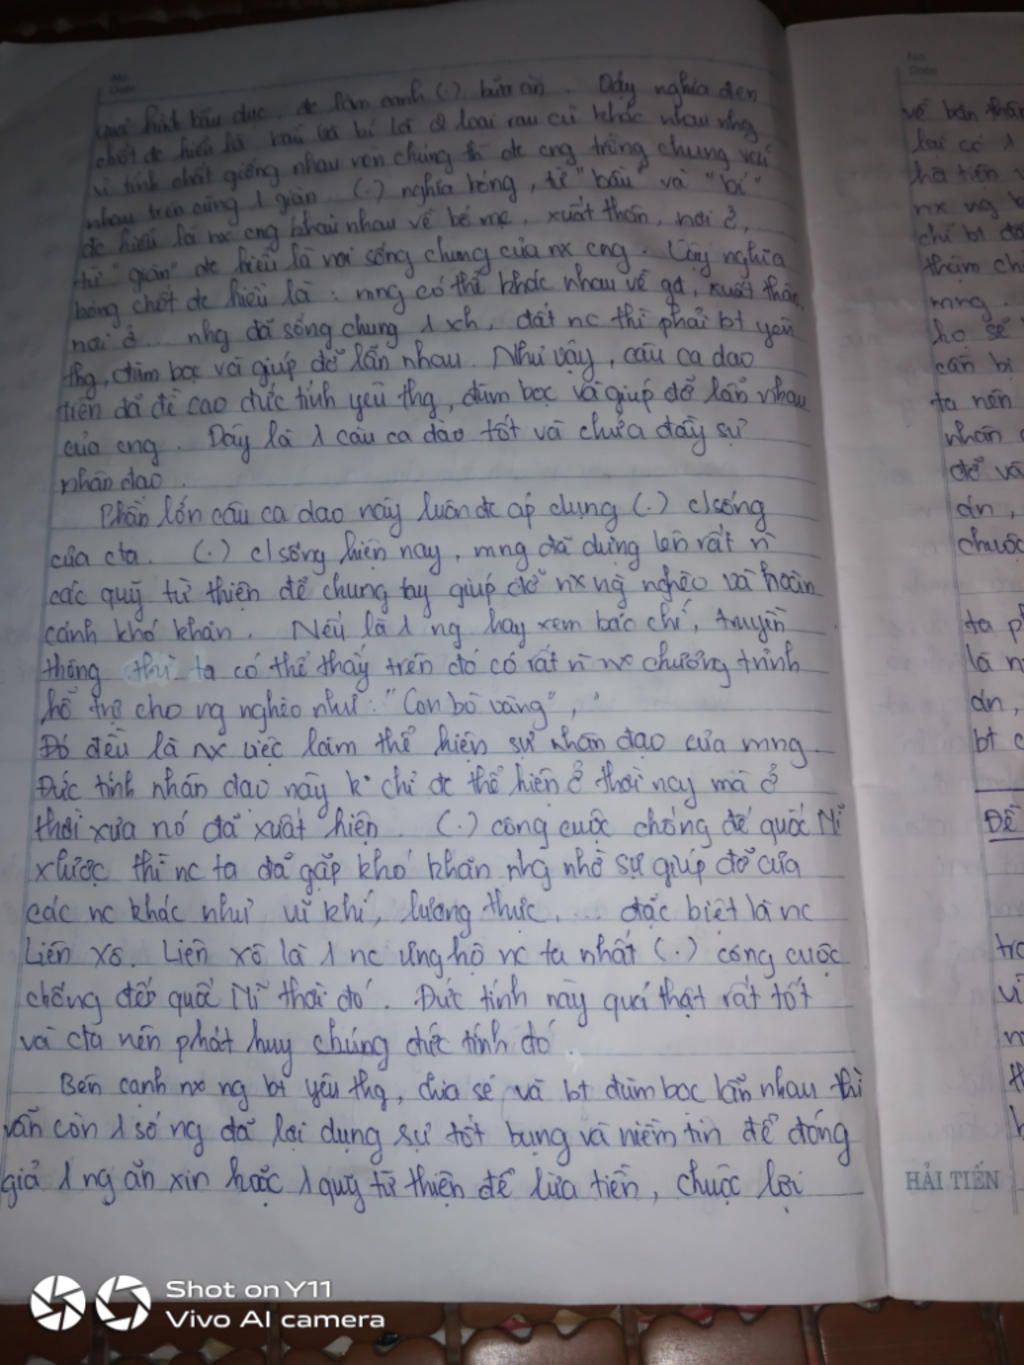 quả hình bầu dục, đc làm canh (.) bữa ăn. Vậy nghĩa đen
chốt đc hiểu là bầu và bí là 2 loại rau củ khác nhau nhg
vì tính chất giống nhau nên chúng đc cng trồng chung với
nhau trên cùng 1 giàn. (.) nghĩa bóng, từ "bầu" và "bí"
đc hiểu là nx cng khác nhau về bố mẹ, xuất thân, nơi ở,
từ "giàn" đc hiểu là nơi sống chung của nx cng. Vậy nghĩa
bóng chốt đc hiểu là: mng có thể khác nhau về gđ, xuất thân,
nơi ở... nhg đã sống chung 1 xh, đất nc thì phải bt yêu
thg, đùm bọc và giúp đỡ lẫn nhau. Như vậy, câu ca dao
trên đã đề cao đức tính yêu thg, đùm bọc và giúp đỡ lẫn nhau
của cng. Đây là 1 câu ca dao tốt và chứa đầy sự
nhân đạo.
Phần lớn câu ca dao này luôn đc áp dụng (.) c/sống
của cta. (.) c/sống hiện nay, mng đã dựng lên rất n̄
các quỹ từ thiện để chung tay giúp đỡ nx ng nghèo và hoàn
cảnh khó khăn. Nếu là 1 ng hay xem báo chí, truyền
thông thì ta có thể thấy trên đó có rất n̄ nx chương trình
hỗ trợ cho ng nghèo như: "Con bò vàng",
Đó đều là nx việc làm thể hiện sự nhân đạo của mng.
Đức tính nhân đạo này k chỉ đc thể hiện ở thời nay mà ở
thời xưa nó đã xuất hiện. (.) công cuộc chống đế quốc Mĩ
xlược thì nc ta đã gặp khó khăn nhg nhờ sự giúp đỡ của
các nc khác như vũ khí, lương thực,... đặc biệt là nc
Liên Xô. Liên xô là 1 nc ủng hộ nc ta nhất (.) công cuộc
chống đế quốc Mĩ thời đó. Đức tính này quả thật rất tốt
và cta nên phát huy chúng đức tính đó.
Bên cạnh nx ng bt yêu thg, chia sẻ và bt đùm bọc lẫn nhau thì
vẫn còn 1 số ng đã lợi dụng sự tốt bụng và niềm tin để đóng
giả 1 ng ăn xin hoặc 1 quỹ từ thiện để lừa tiền, chuộc lợi
về bản thân
lại có 1
chỉ bt
mng.
họ sẽ
cần bị
ta nên
nhân
đỡ và
án,
chuộc
ta
là
án,
bt
ĐỀ
HẢI TIẾN
Shot on Y11
Vivo AI camera